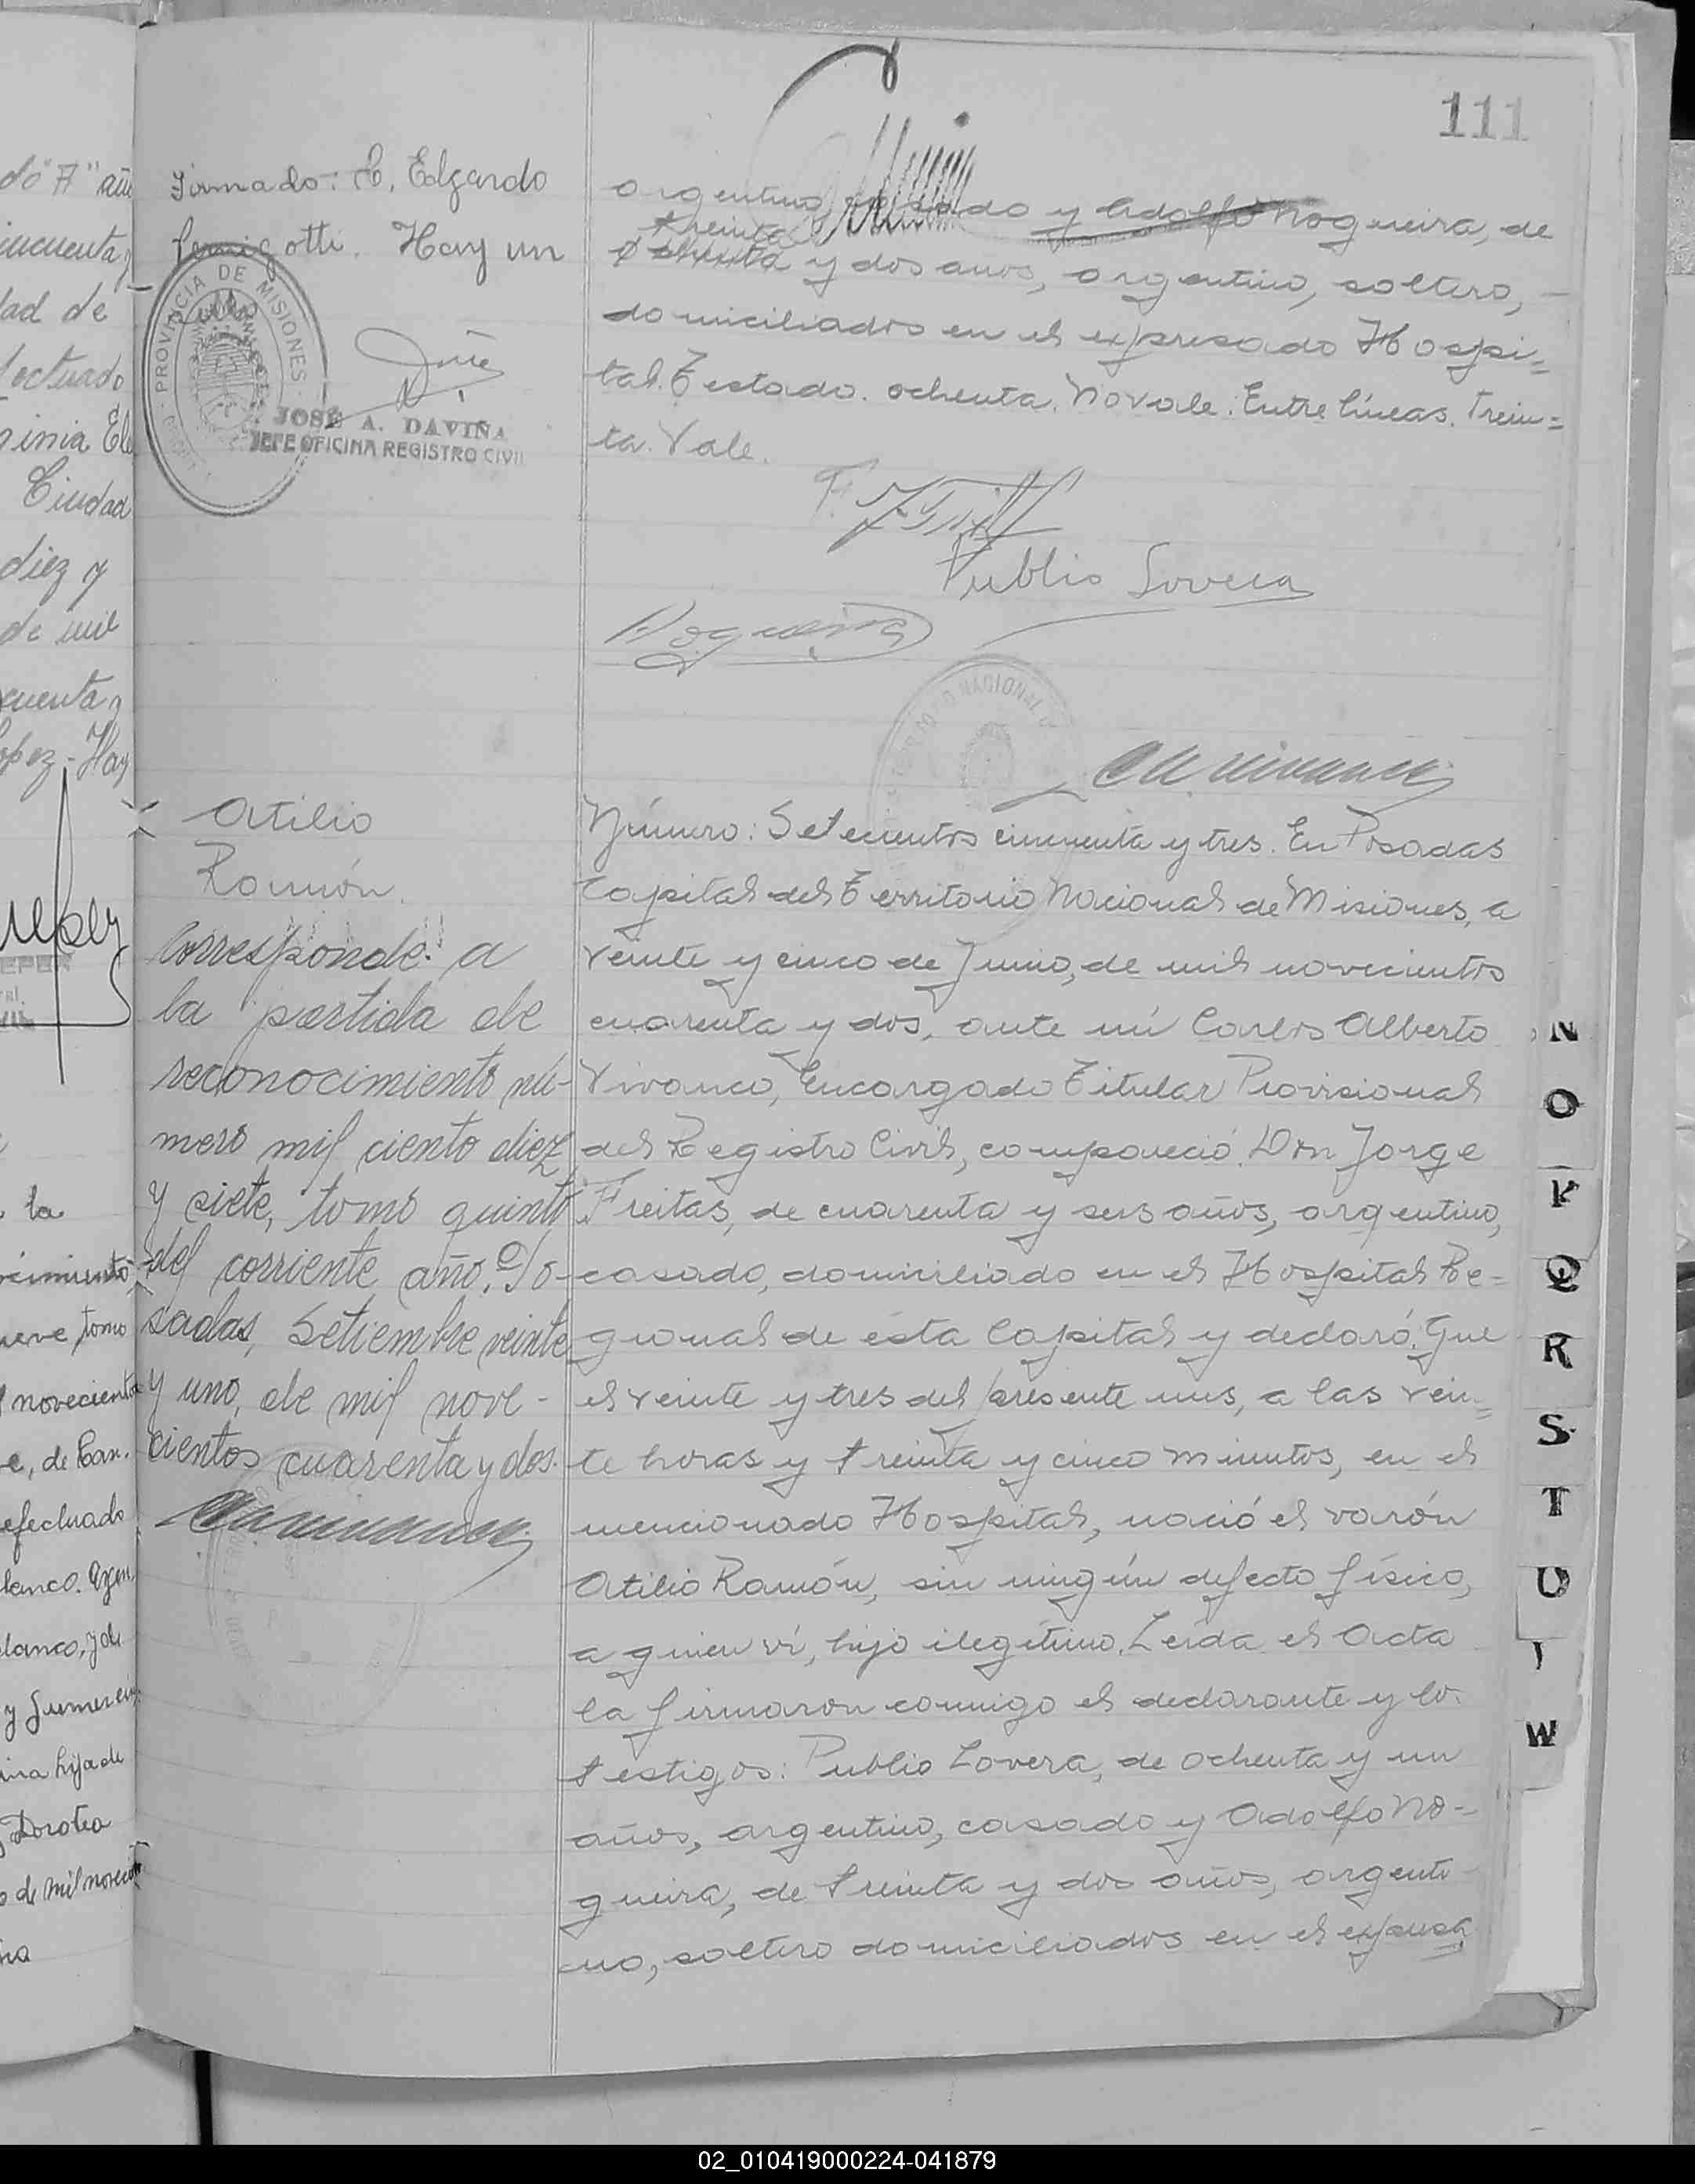 111
Firmado: C. Edgardo
otti. Hay un
PROVINCIA DE MISIONES
JOSÉ A. DAVIÑA
JEFE OFICINA REGISTRO CIVIL
argentino, casado y Adolfo Nogueira, de
treinta
ochenta y dos años, argentino, soltero,
domiciliados en el expresado Hospi=
tal. Testado. ochenta. No vale: Entre líneas. Trein=
ta. Vale.
Publio Lovera
Nogueira
NACIONAL
Atilio
Ramón.
Corresponde a
la partida de
reconocimiento nú-
mero mil ciento diez
y siete, tomo quinto
del corriente año. Po-
sadas, Setiembre veinte
y uno, de mil nove-
cientos cuarenta y dos.
Número: Setecientos cincuenta y tres. En Posadas
Capital del Territorio Nacional de Misiones, a
veinte y cinco de Junio, de mil novecientos
cuarenta y dos, ante mí Carlos Alberto
Vivanco, Encargado Titular Provisional
del Registro Civil, compareció. Don Jorge
Freitas, de cuarenta y seis años, argentino,
casado, domiciliado en el Hospital Re=
gional de ésta Capital y declaró. Que
el veinte y tres del presente mes, a las vein=
te horas y treinta y cinco minutos, en el
mencionado Hospital, nació el varón
Atilio Ramón, sin ningún defecto físico,
a quien ví, hijo ilegítimo. Leída el Acta
la firmaron conmigo el declarante y lo.
testigos: Publio Lovera, de ochenta y un
años, argentino, casado y Adolfo No=
gueira, de treinta y dos años, argenti-
no, soltero domiciliados en el expresa
do "A"
cincuenta y
dad de
Ciudad
diez y
de mil
cuenta y
Lopez - Hay
la
tomo
novecientos
efectuado
hija de
Dorotea
de mil noveci
N
O
P
Q
R
S
T
U
W
02_010419000224-041879